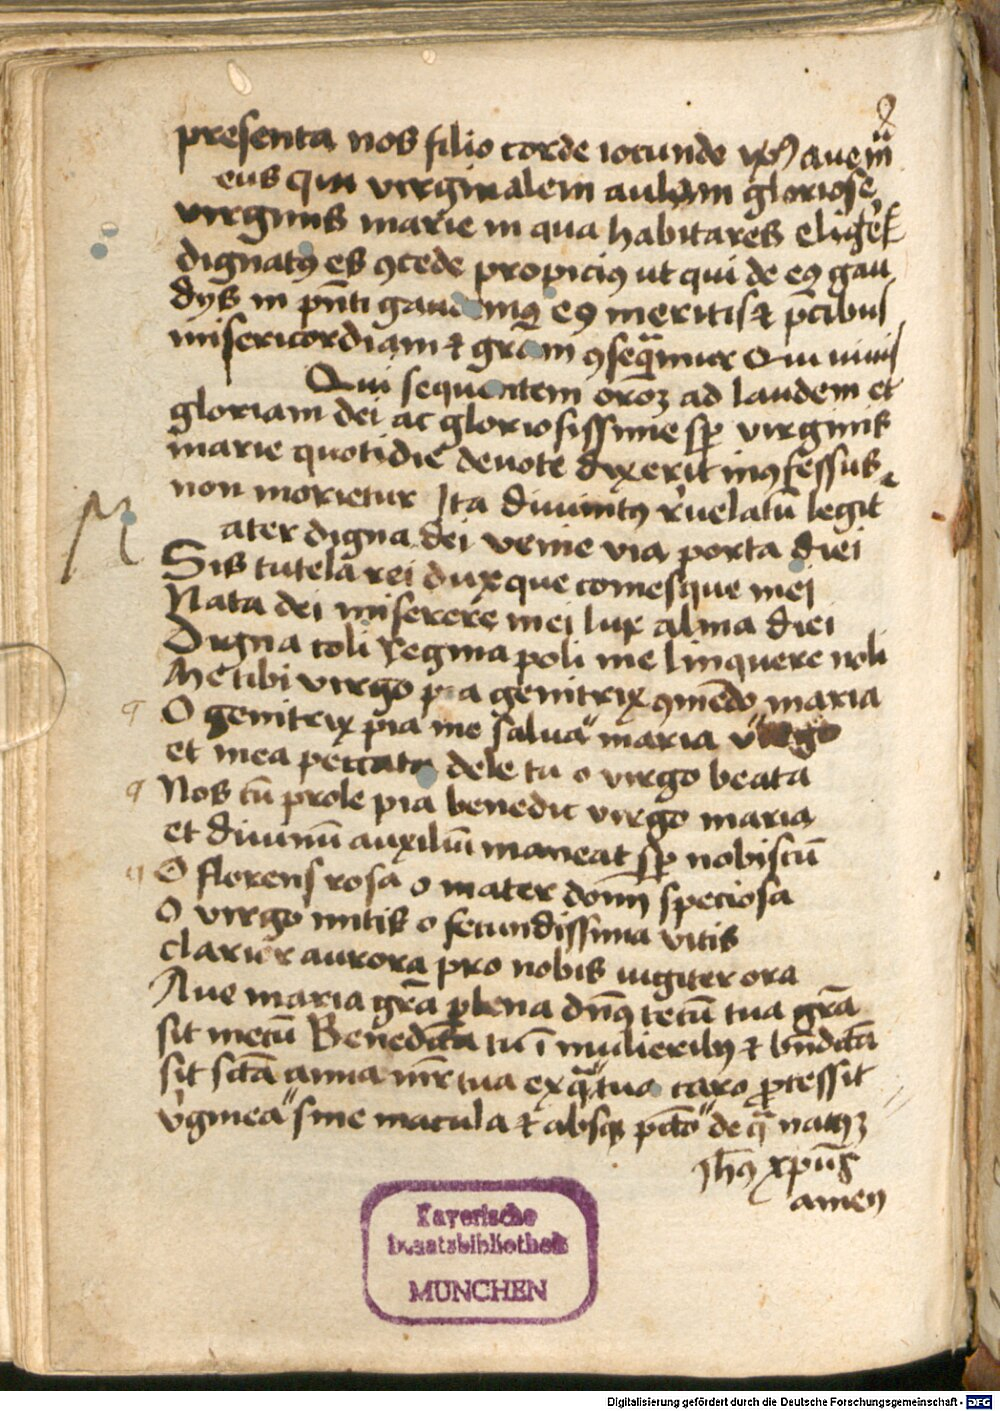 presenta nos filio corde iocunde xpֿs aue m̄
eus qui virginalem aulam gloriose
virginis marie in qua habitares eligere
dignatꝯ es ꝯcede propiciꝯ ut qui de eꝯ gau
dijs in pn̄ti gaudemꝯ eꝯ meritis ⁊ p̄cibus
misericordiam ⁊ grām ꝯsequamur Qui uiuis
Qui sequentem oroꝫ ad laudem et
gloriam dei ac gloriosissime sp̄ virginis
marie quotidie deuote dixerit inꝯfessus
non morietur Ita diuinitꝯ reuelatū legit
M ater digna dei venie via porta diei
Sis tutela rei duxque comesque mei
Nata dei miserere mei lux alma diei
Digna coli regina poli me linquere noli
Me tibi virgo pia genitrix ꝯmēdo maria
O genitrix pia me salua maria virgo
et mea peccata dele tu o virgo beata
Nos cū prole pia benedic virgo maria
et diuinū auxiliū maneat sp̄ nobiscū
O florens rosa o mater domī speciosa
O virgo mitis o fecundissima vitis
clarior aurora pro nobis iugiter ora
Aue maria grā plena dn̄s tecū tua grā
sit mecū Benedicta tu ī mulieribꝯ ⁊ bn̄dictā
sit sctā anna mr̄ tua ex qua tua caro ꝓcessit
v̓ginea sine macula ⁊ absqꝫ pctō de qua natꝯ ꝫ
Jhꝯ xpūs
amen
Bayerische
Staatsbibliothek
MÜNCHEN
Digitalisierung gefördert durch die Deutsche Forschungsgemeinschaft - DFG